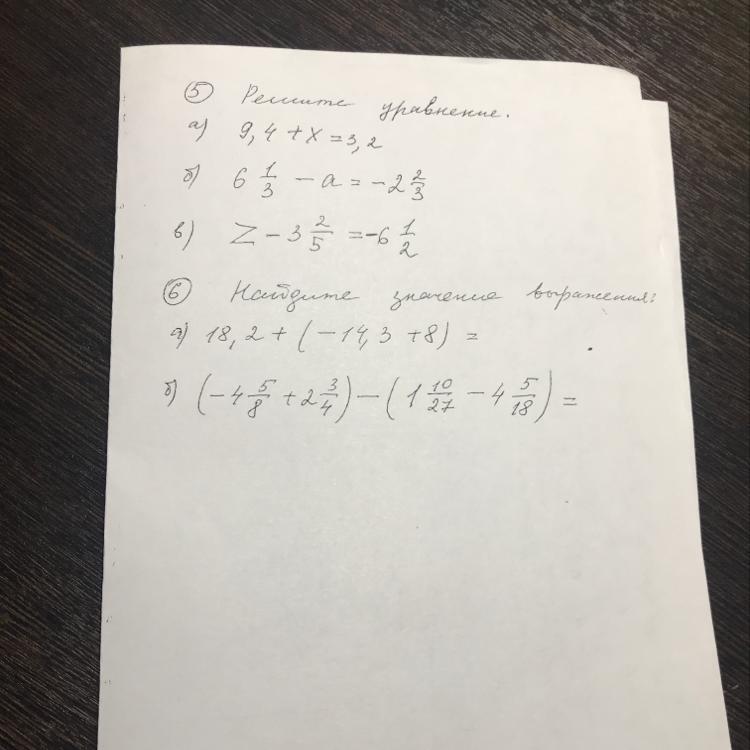 5 Решите уравнение.
а) 9,4 + x = 3,2
б) 6 1/3 - a = -2 2/3
в) Z - 3 2/5 = -6 1/2
6 Найдите значение выражения:
а) 18,2 + (-14,3 + 8) =
б) (-4 5/8 + 2 3/4) - (1 10/27 - 4 5/18) =